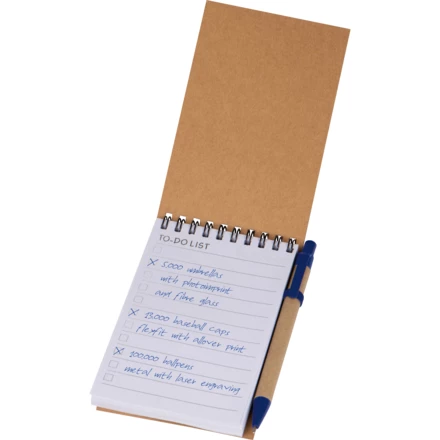 TO-DO LIST
5.000 umbrellas
with photoinprint
and fibre glass
13.000 baseball caps
flexfit with allover print
100.000 ballpens
metal with laser engraving